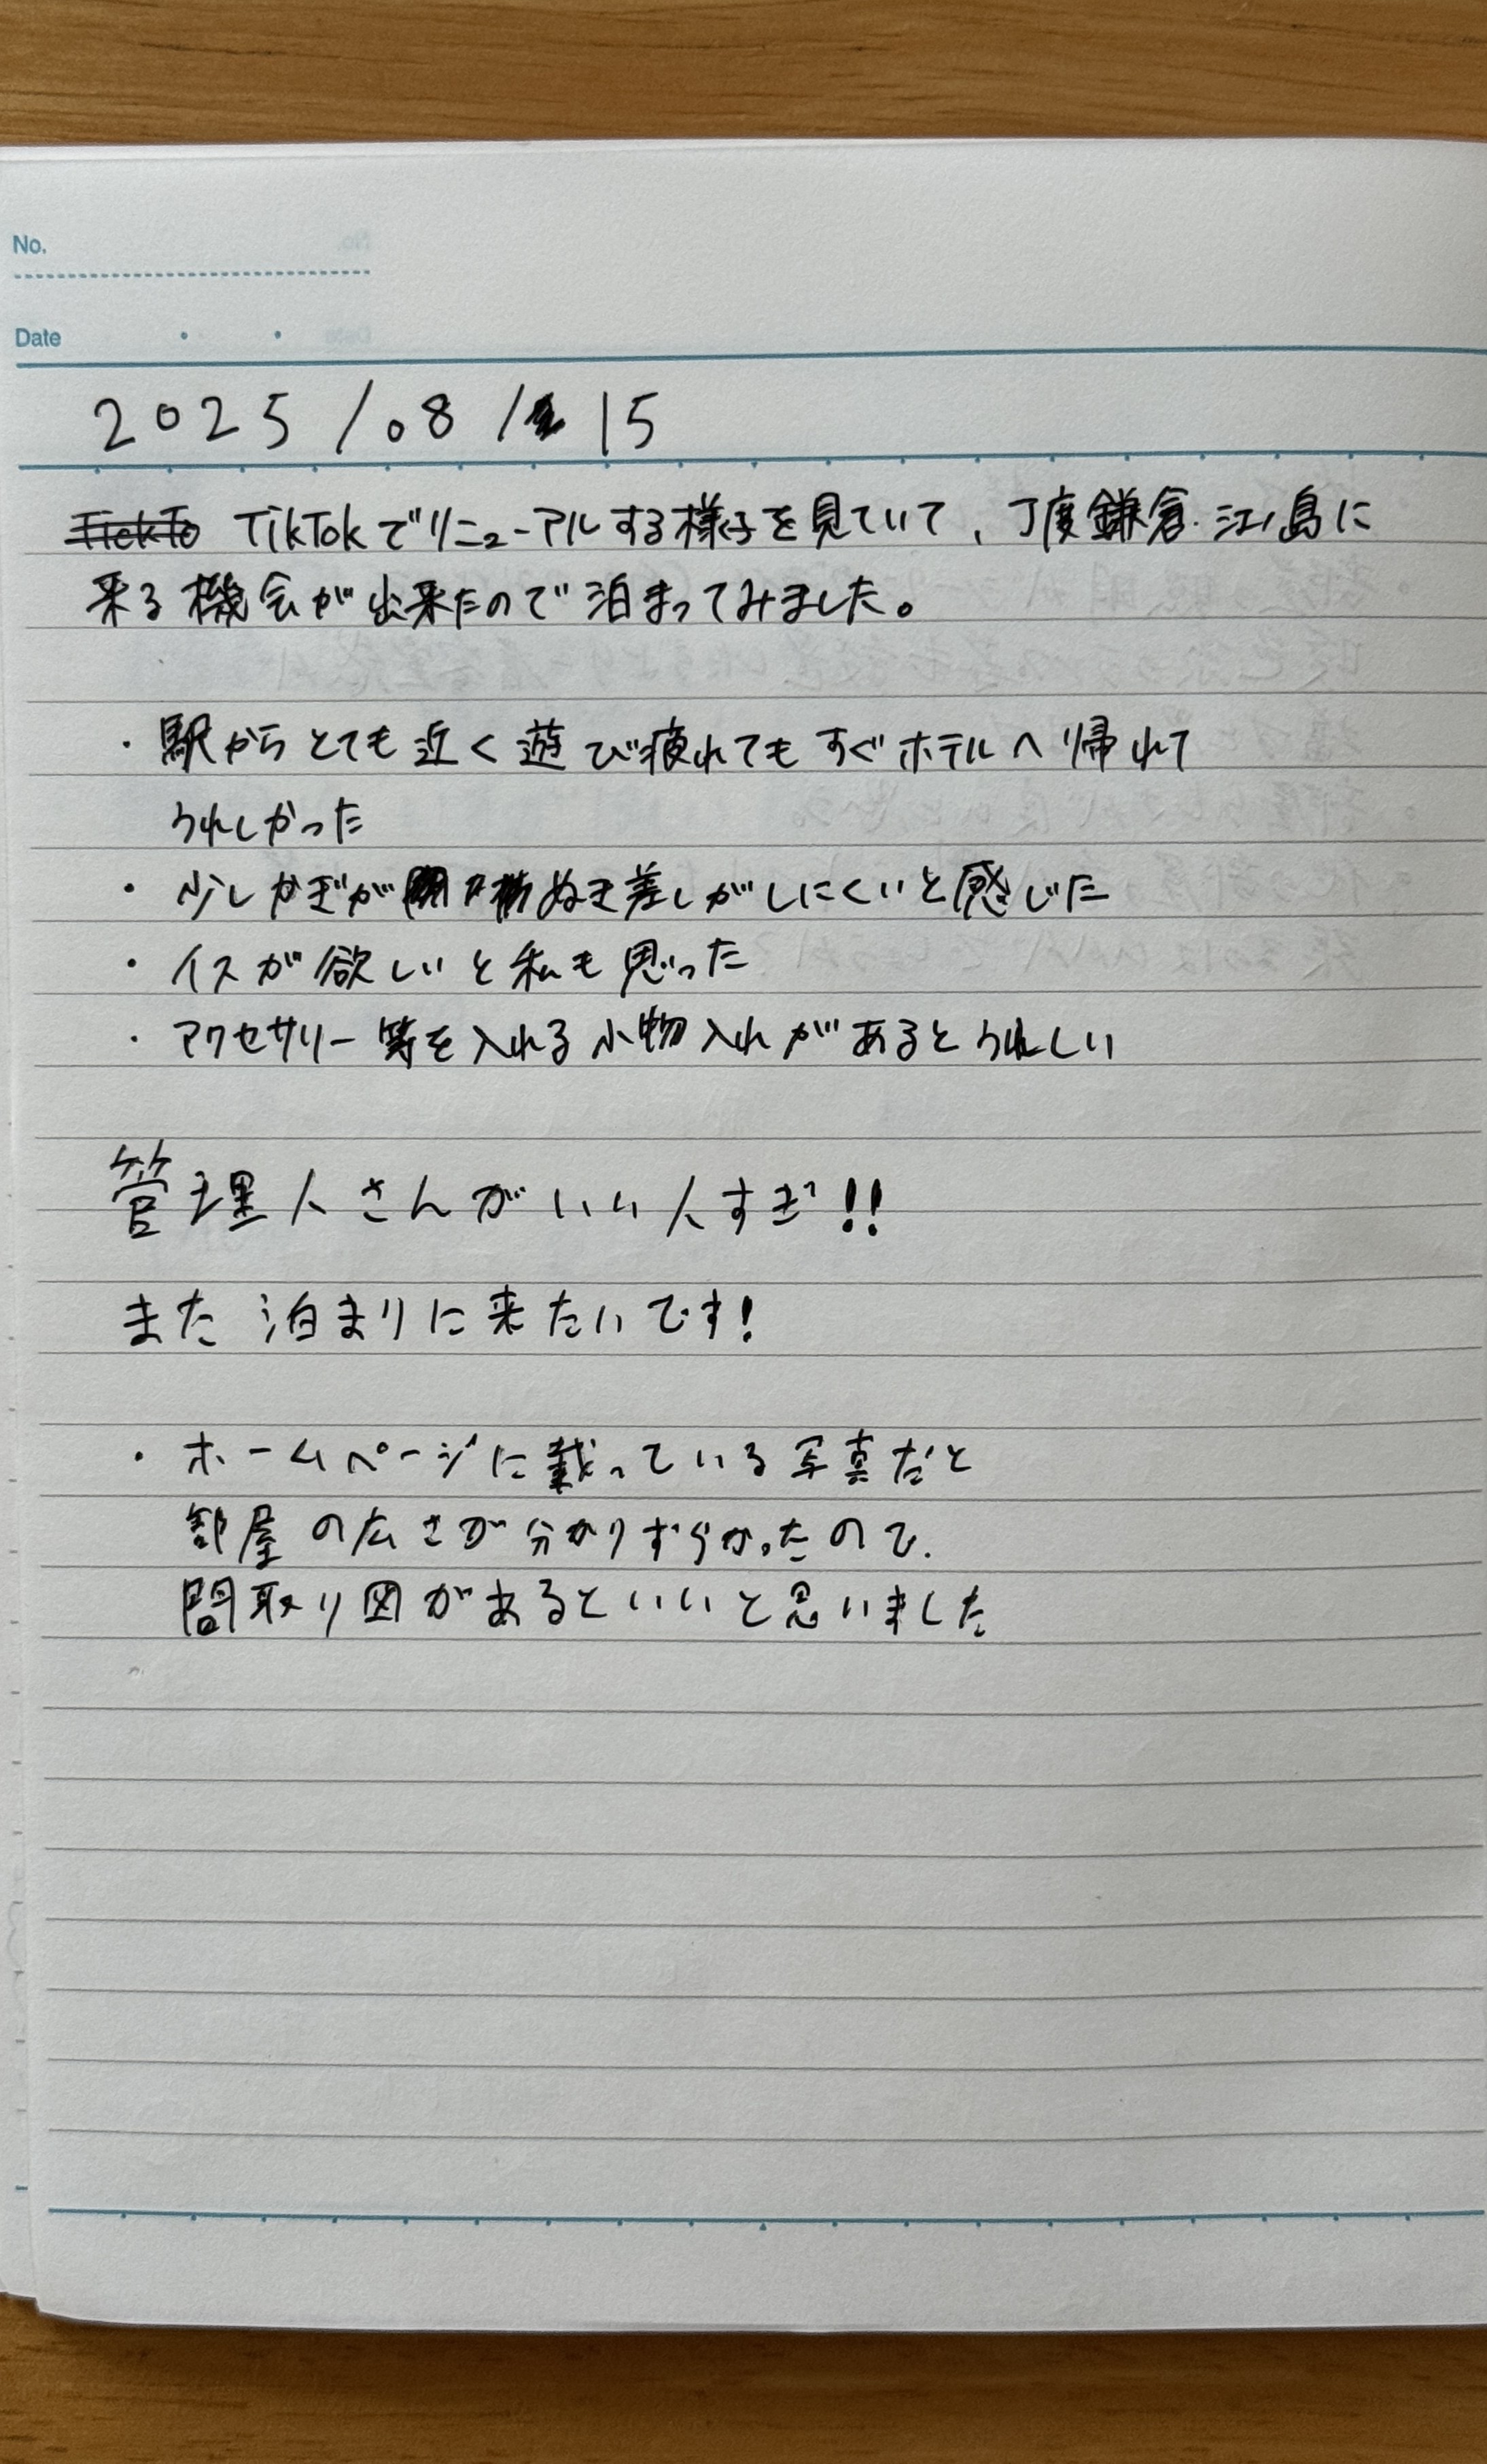 No.
Date
2025/08/15
TikTokでリニューアルする様子を見ていて、丁度鎌倉・江ノ島に
来る機会が出来たので泊まってみました。
・駅からとても近く遊び疲れてもすぐホテルへ帰れて
うれしかった
・少しかぎがぬき差しがしにくいと感じた
・イスが欲しいと私も思った
・アクセサリー等を入れる小物入れがあるとうれしい
管理人さんがいい人すぎ!!
また泊まりに来たいです!
・ホームページに載っている写真だと
部屋の広さが分かりずらかったので、
間取り図があるといいと思いました